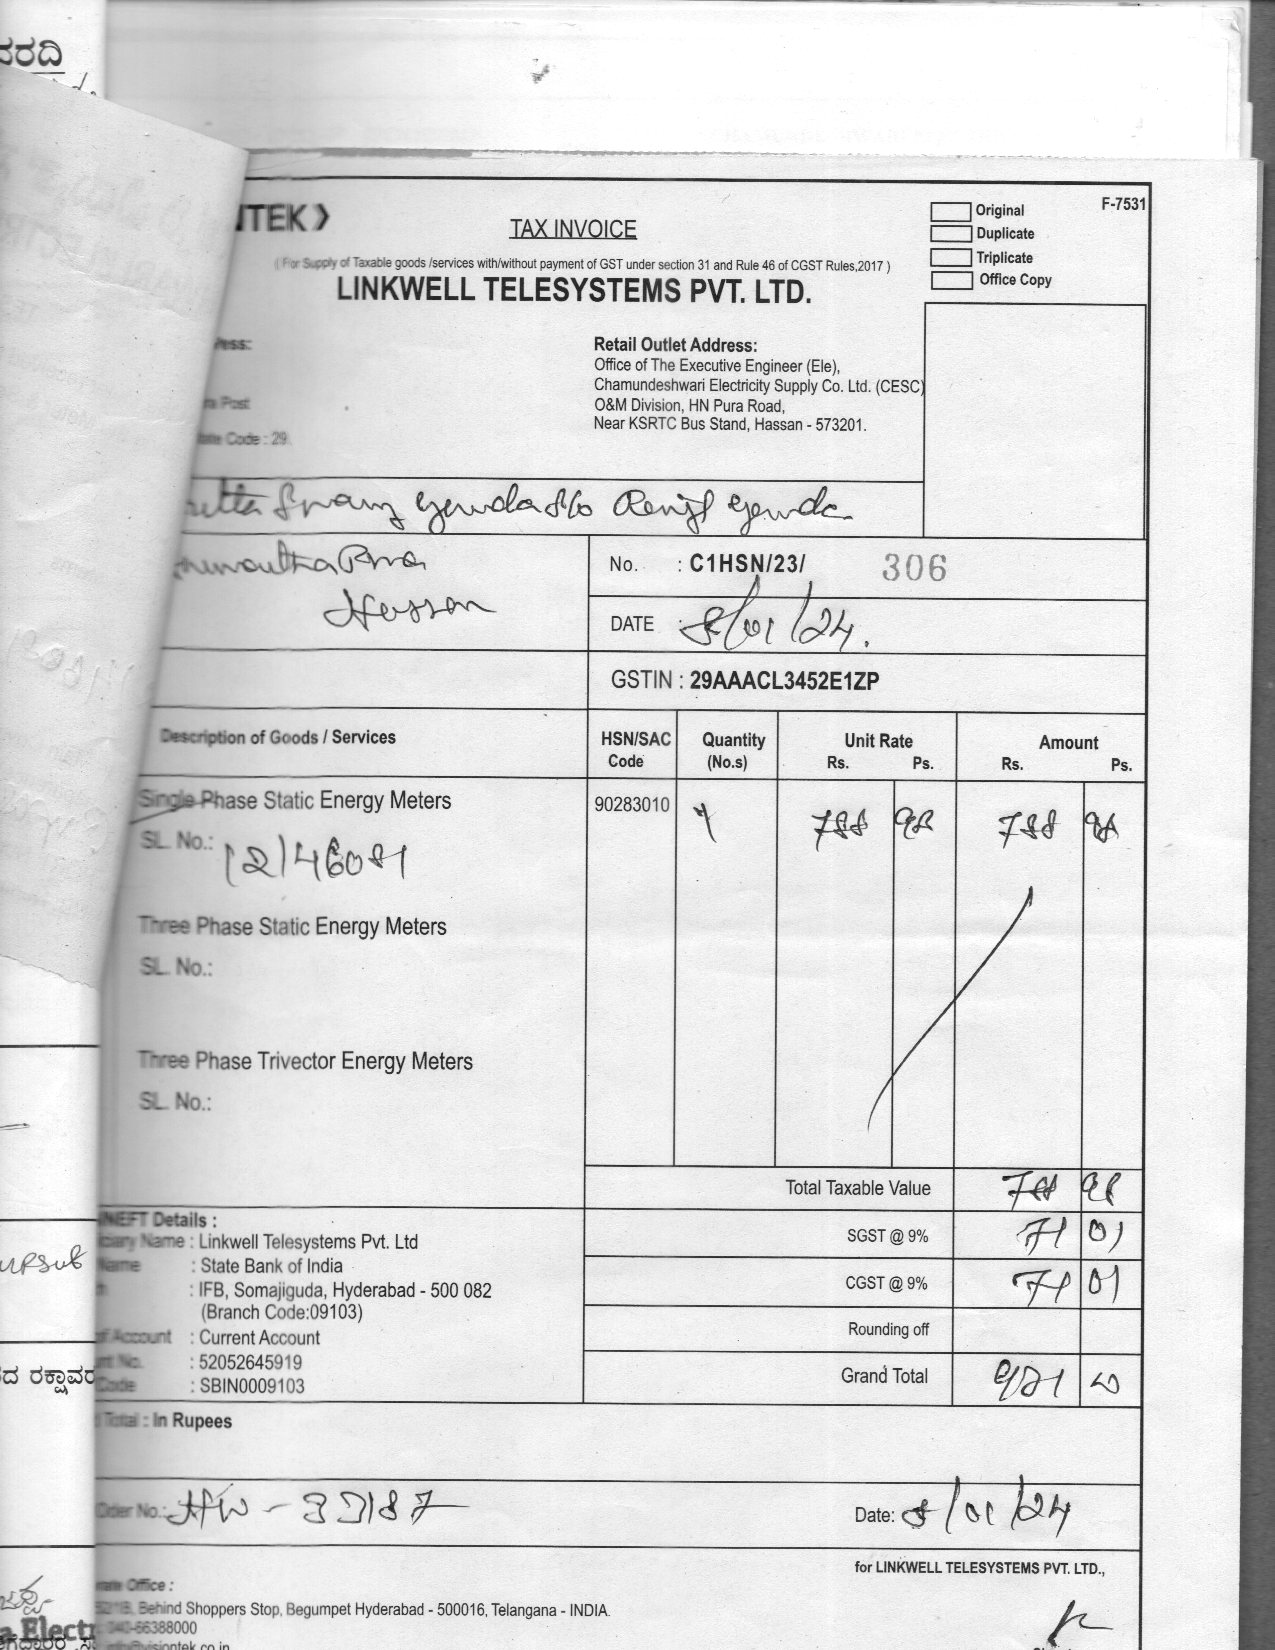 ವರದಿ
NTEK
TAX INVOICE
Original
F-7531
Duplicate
Triplicate
Office Copy
( For Supply of Taxable goods /services with/without payment of GST under section 31 and Rule 46 of CGST Rules,2017 )
LINKWELL TELESYSTEMS PVT. LTD.
ress:
Post
Code : 29.
Retail Outlet Address:
Office of The Executive Engineer (Ele),
Chamundeshwari Electricity Supply Co. Ltd. (CESC)
O&M Division, HN Pura Road,
Near KSRTC Bus Stand, Hassan - 573201.
gowda S/o gowda
Hassan
No. : C1HSN/23/ 306
DATE : 8/01/24.
GSTIN : 29AAACL3452E1ZP
Description of Goods / Services HSN/SAC Code Quantity (No.s) Unit Rate Rs. Ps. Amount Rs. Ps.
Single Phase Static Energy Meters 90283010 1 788 98 788 98
SL. No.:
Three Phase Static Energy Meters
SL. No.:
Three Phase Trivector Energy Meters
SL. No.:
Total Taxable Value 788 98
SGST @ 9% 71 01
CGST @ 9% 71 01
Rounding off
Grand Total 931 00
NEFT Details :
Name : Linkwell Telesystems Pvt. Ltd
Name : State Bank of India
: IFB, Somajiguda, Hyderabad - 500 082
(Branch Code:09103)
of Account : Current Account
No. : 52052645919
Code : SBIN0009103
Total : In Rupees
Order No.: HW - 33187
Date: 8/01/24
for LINKWELL TELESYSTEMS PVT. LTD.,
Office :
Behind Shoppers Stop, Begumpet Hyderabad - 500016, Telangana - INDIA.
: 040-66388000
ದ ರಕ್ಷಾವರ
a Electr